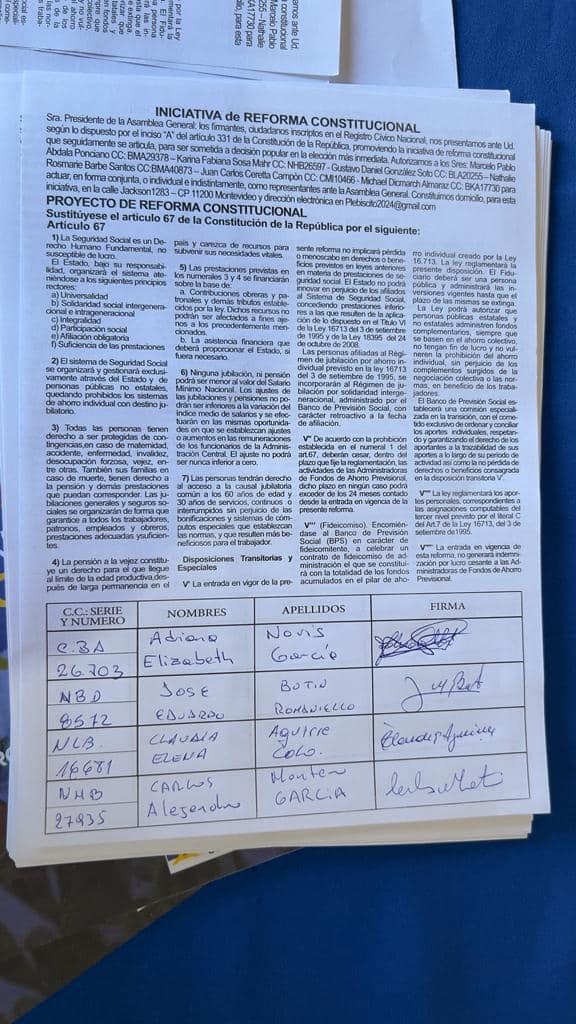 INICIATIVA de REFORMA CONSTITUCIONAL
Sra. Presidente de la Asamblea General: los firmantes, ciudadanos inscriptos en el Registro Cívico Nacional, nos presentamos ante Ud.
según lo dispuesto por el inciso "A" del artículo 331 de la Constitución de la República, promoviendo la iniciativa de reforma constitucional
que seguidamente se articula, para ser sometida a decisión popular en la elección más inmediata. Autorizamos a los Sres. Marcelo Pablo
Abdala Ponciano CC: BMA29378 – Karina Fabiana Sosa Mahr CC: NHB26597 - Gustavo Daniel González Soto CC: BLA20255 – Nathalie
Rosmarie Barbe Santos CC:BMA40873 – Juan Carlos Ceretta Campón CC: CMI10466 - Michael Dicmarch Almaraz CC: BKA17730 para
actuar, en forma conjunta, o individual e indistintamente, como representantes ante la Asamblea General. Constituimos domicilio, para esta
iniciativa, en la calle Jackson1283 – CP 11200 Montevideo y dirección electrónica en Plebiscito2024@gmail.com
PROYECTO DE REFORMA CONSTITUCIONAL
Sustitúyese el articulo 67 de la Constitución de la República por el siguiente:
Articulo 67
1) La Seguridad Social es un De-
recho Humano Fundamental, no
susceptible de lucro.
El Estado, bajo su responsabi-
lidad, organizará el sistema ate-
niéndose a los siguientes principios
rectores:
a) Universalidad
b) Solidaridad social intergenera-
cional e intrageneracional
c) Integralidad
d) Participación social
e) Afiliación obligatoria
f) Suficiencia de las prestaciones
2) El sistema de Seguridad Social
se organizará y gestionará exclusi-
vamente através del Estado y de
personas públicas no estatales,
quedando prohibidos los sistemas
de ahorro individual con destino ju-
bilatorio.
3) Todas las personas tienen
derecho a ser protegidas de con-
tingencias,en caso de maternidad,
accidente, enfermedad, invalidez,
desocupación forzosa, vejez, en-
tre otras. También sus familias en
caso de muerte, tienen derecho a
la pensión y demás prestaciones
que puedan corresponder. Las ju-
bilaciones generales y seguros so-
ciales se organizarán de forma que
garantice a todos los trabajadores,
patronos, empleados y obreros,
prestaciones adecuadas ysuficien-
tes.
4) La pensión a la vejez constitu-
ye un derecho para el que llegue
al límite de la edad productiva,des-
pués de larga permanencia en el
país y carezca de recursos para
subvenir sus necesidades vitales.
5) Las prestaciones previstas en
los numerales 3 y 4 se financiarán
sobre la base de:
a. Contribuciones obreras y pa-
tronales y demás tributos estable-
cidos por la ley. Dichos recursos no
podrán ser afectados a fines aje-
nos a los precedentemente men-
cionados.
b. La asistencia financiera que
deberá proporcionar el Estado, si
fuera necesario.
6) Ninguna jubilación, ni pensión
podrá ser menor al valor del Salario
Mínimo Nacional. Los ajustes de
las jubilaciones y pensiones no po-
drán ser inferiores a la variación del
Índice medio de salarios y se efec-
tuarán en las mismas oportunida-
des en que se establezcan ajustes
o aumentos en las remuneraciones
de los funcionarios de la Adminis-
tración Central. El ajuste no podrá
ser nunca inferior a cero.
7) Las personas tendrán derecho
al acceso a la causal jubilatoria
común a los 60 años de edad y
30 años de servicios, continuos o
interrumpidos sin perjuicio de las
bonificaciones y sistemas de cóm-
putos especiales que establezcan
las normas, y que resulten más be-
neficiosos para el trabajador.
Disposiciones Transitorias y
Especiales
V' La entrada en vigor de la pre-
sente reforma no implicará pérdida
o menoscabo en derechos o bene-
ficios previstos en leyes anteriores
en materia de prestaciones de se-
guridad social. El Estado no podrá
innovar en perjuicio de los afiliados
al Sistema de Seguridad Social,
concediendo prestaciones inferio-
res a las que resulten de la aplica-
ción de lo dispuesto en el Título VI
de la Ley 16713 del 3 de setiembre
de 1995 y de la Ley 18395 del 24
de octubre de 2008.
Las personas afiliadas al Régi-
men de jubilación por ahorro in-
dividual previsto en la ley 16713
del 3 de setiembre de 1995, se
incorporarán al Régimen de ju-
bilación por solidaridad interge-
neracional, administrado por el
Banco de Previsión Social, con
carácter retroactivo a la fecha
de afiliación.
V'' De acuerdo con la prohibición
establecida en el numeral 1 del
art.67, deberán cesar, dentro del
plazo que fije la reglamentación, las
actividades de las Administradoras
de Fondos de Ahorro Previsional,
dicho plazo en ningún caso podrá
exceder de los 24 meses contado
desde la entrada en vigencia de la
presente reforma.
V''' (Fideicomiso). Encomién-
dase al Banco de Previsión
Social (BPS) en carácter de
fideicomitente, a celebrar un
contrato de fideicomiso de ad-
ministración el que se constitui-
rá con la totalidad de los fondos
acumulados en el pilar de aho-
rro individual creado por la Ley
16.713. La ley reglamentará la
presente disposición. El Fidu-
ciario deberá ser una persona
pública y administrará las in-
versiones vigentes hasta que el
plazo de las mismas se extinga.
La Ley podrá autorizar que
personas públicas estatales y
no estatales administren fondos
complementarios, siempre que
se basen en el ahorro colectivo,
no tengan fin de lucro y no vul-
neren la prohibición del ahorro
individual, sin perjuicio de los
complementos surgidos de la
negociación colectiva o las nor-
mas, en beneficio de los traba-
jadores.
El Banco de Previsión Social es-
tablecerá una comisión especiali-
zada en la transición, con el come-
tido exclusivo de ordenar y conciliar
los aportes individuales, respetan-
do y garantizando el derecho de los
aportantes a la trazabilidad de sus
aportes a lo largo de su período de
actividad así como la no pérdida de
derechos o beneficios consagrada
en la disposición transitoria V'.
V'''' La ley reglamentará los apor-
tes personales, correspondientes a
las asignaciones computables del
tercer nivel previsto por el literal C
del Art.7 de la Ley 16713, del 3 de
setiembre de1995.
V''''' La entrada en vigencia de
esta reforma, no generará indemni-
zación por lucro cesante a las Ad-
ministradoras de Fondos de Ahorro
Previsional.
C.C.: SERIE
Y NUMERO
NOMBRES
APELLIDOS
FIRMA
CBA
26.703
Adriana
Elizabeth
Novis
García
NBD
8572
JOSE
EDUARDO
BOTIN
ROMANIELLO
NLB
16681
CLAUDIA
ELENA
Aguirre
Colo.
NHB
27935
CARLOS
Alejandro
Montero
GARCIA